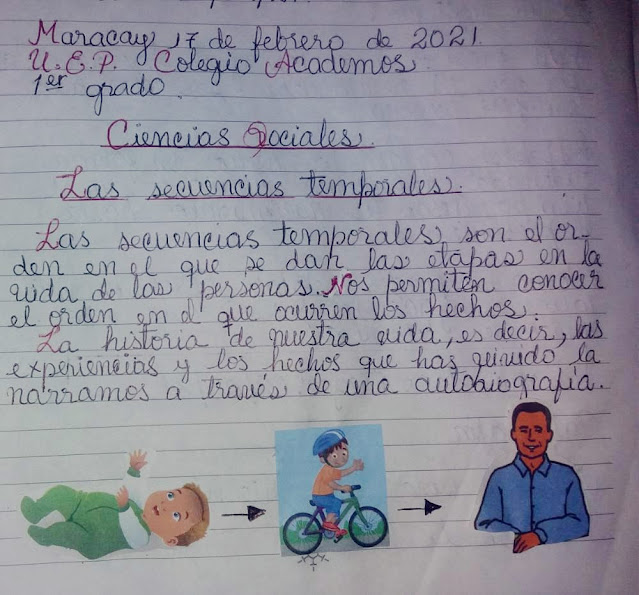 Maracay 17 de febrero de 2021.
U.E.P. Colegio Academos
1er grado.
Ciencias Sociales.
Las secuencias temporales.
Las secuencias temporales, son el or-
den en el que se dan las etapas en la
vida, de las personas. Nos permiten conocer
el orden en el que ocurren los hechos.
La historia de nuestra vida, es decir, las
experiencias y los hechos que has vivido la
narramos a través de una autobiografía.